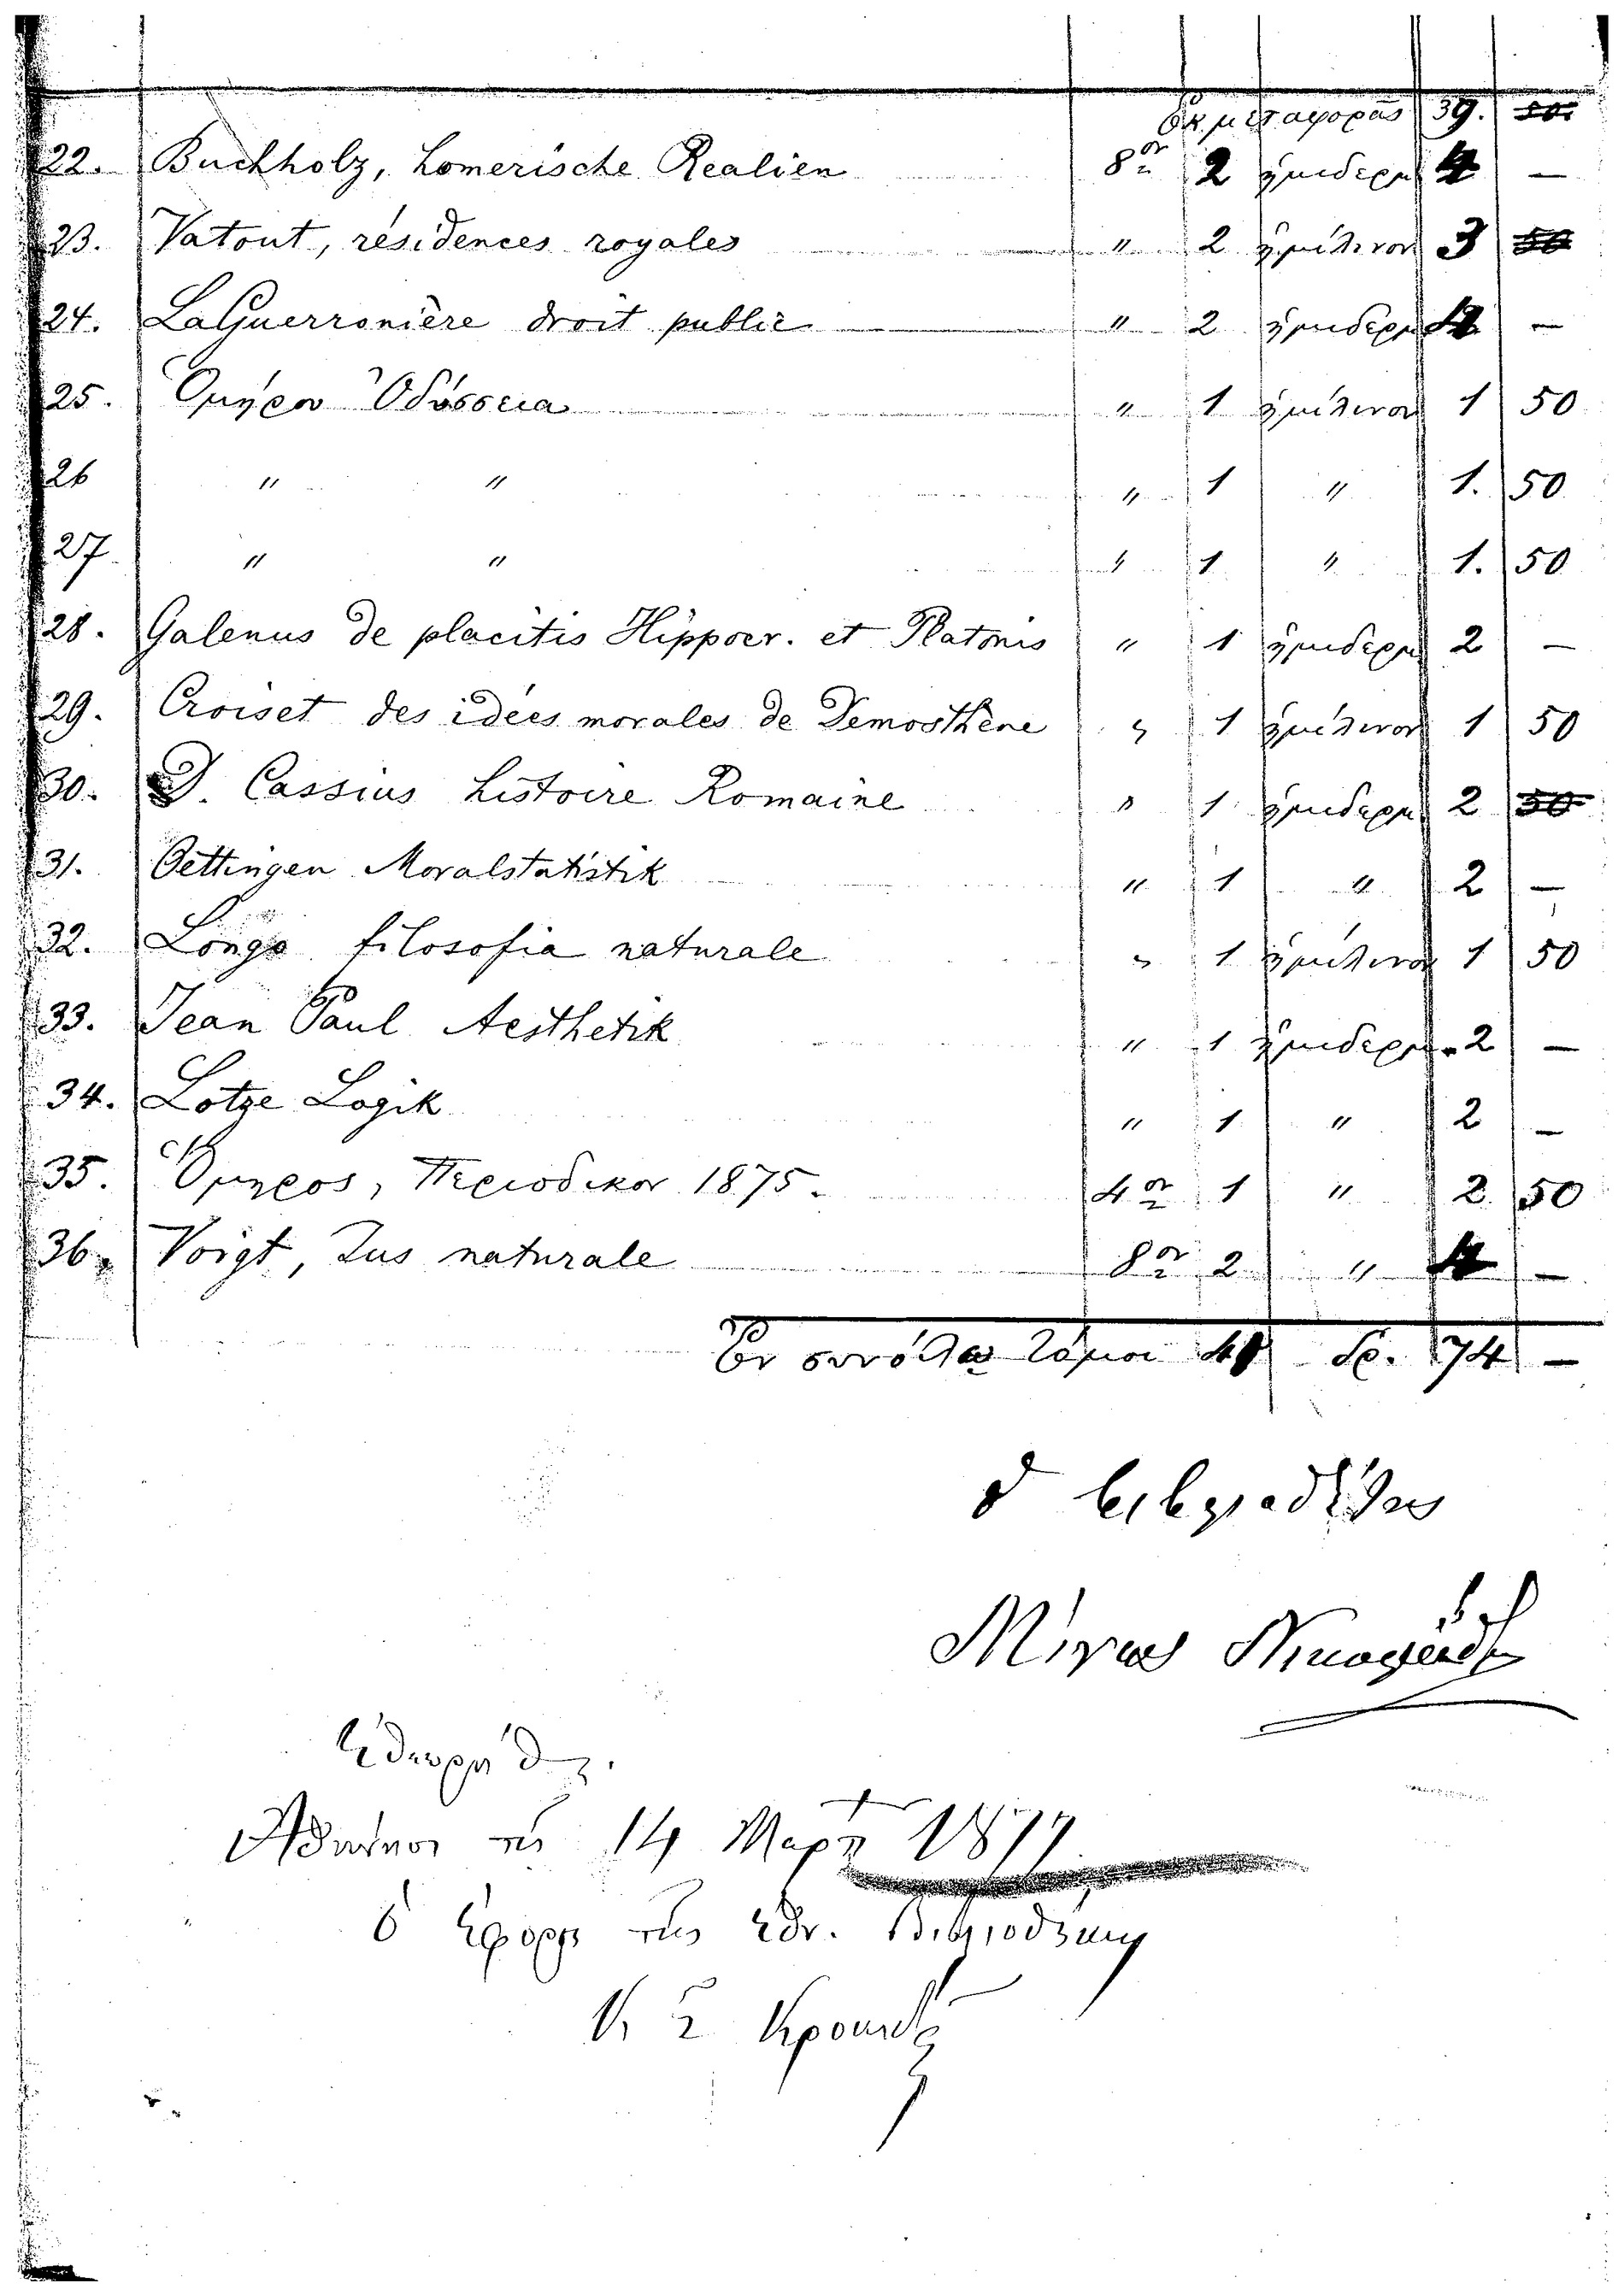 Ἐκ μεταφορᾶς 39. 50.
22. Buchholz, homerische Realien 8ον 2 ἡμιδερμ 4 —
23. Vatout, résidences royales " 2 ἡμίλινον 3 50
24. LaGuerronière droit public " 2 ἡμιδερμ 4 —
25. Ομήρου Οδύσσεια " 1 ἡμίλινον 1 50
26 " " " 1 " 1. 50
27 " " " 1 " 1. 50
28. Galenus de placitis Hippocr. et Platonis " 1 ἡμιδερμ 2 —
29. Croiset des idées morales de Démosthène " 1 ἡμίλινον 1 50
30. D. Cassius histoire Romaine " 1 ἡμιδερμ 2 50
31. Oettingen Moralstatistik " 1 " 2 —
32. Longo filosofia naturale " 1 ἡμίλινον 1 50
33. Jean Paul Aesthetik " 1 ἡμιδερμ. 2 —
34. Lotze Logik " 1 " 2 —
35. Ὅμηρος, Περιοδικον 1875. 4ον 1 " 2. 50
36. Voigt, Jus naturale 8ον 2 " 4 —
Ἐν συνόλῳ τόμοι Δρ. 74 —
ὁ βιβλιοδέτης
Μίνως
Ἐθεωρήθη.
Ἀθήνησι τῇ 14 Μαρτ 1877
ὁ Ἔφορος τῆς Ἐθν. Βιβλιοθήκης